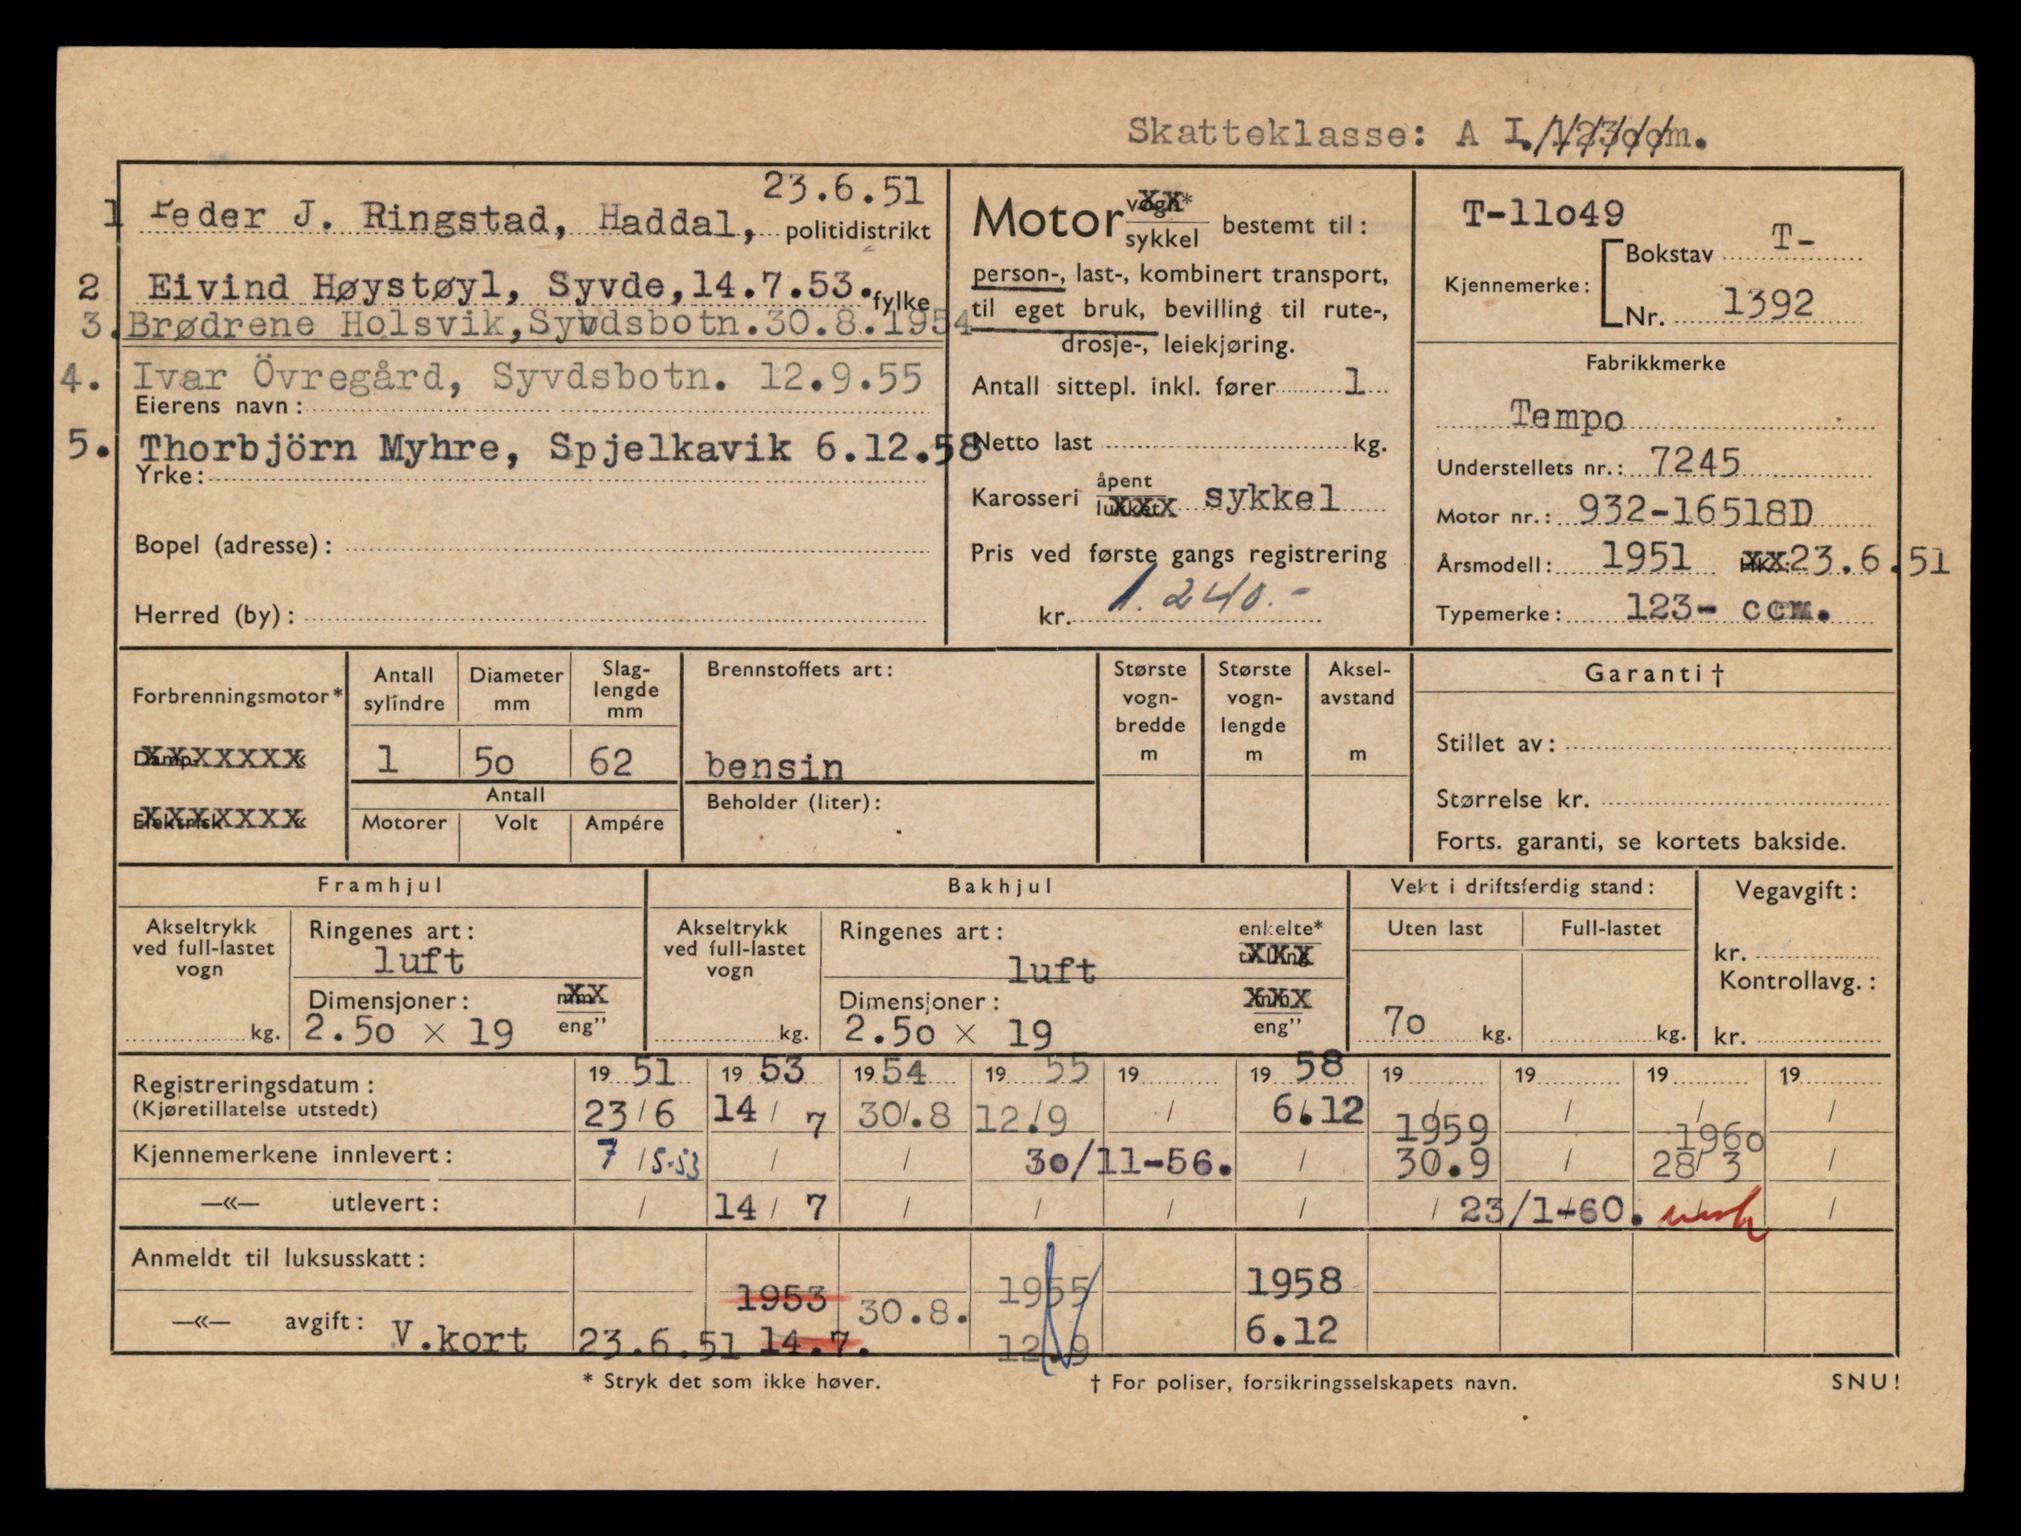 Skatteklasse: A I.
23.6.51
1 Peder J. Ringstad, Haddal, politidistrikt
2 Eivind Høystøyl, Syvde, 14.7.53. fylke
3. Brødrene Holsvik, Syvdsbotn. 30.8.1954
4. Ivar Övregård, Syvdsbotn. 12.9.55
Eierens navn:
5. Thorbjörn Myhre, Spjelkavik 6.12.58
Yrke:
Bopel (adresse):
Herred (by):
Motor vogn*
sykkel bestemt til:
person-, last-, kombinert transport,
til eget bruk, bevilling til rute-,
drosje-, leiekjøring.
Antall sittepl. inkl. fører 1
Netto last kg.
Karosseri åpent
lukket sykkel
Pris ved første gangs registrering
kr. 1.240.-
T-11049
Kjennemerke: Bokstav T-
Nr. 1392
Fabrikkmerke
Tempo
Understellets nr.: 7245
Motor nr.: 932-16518D
Årsmodell: 1951 HK.: 23.6.51
Typemerke: 123- ccm.
Forbrenningsmotor*
Damp- «
Elektrisk «
Antall sylindre
Diameter mm
Slag-lengde mm
1 50 62
Antall
Motorer Volt Ampére
Brennstoffets art:
bensin
Beholder (liter):
Største vogn-bredde m
Største vogn-lengde m
Aksel-avstand m
Garanti †
Stillet av:
Størrelse kr.
Forts. garanti, se kortets bakside.
Framhjul
Akseltrykk ved full-lastet vogn
kg.
Ringenes art:
luft
Dimensjoner: mm
2.50 x 19 eng"
Bakhjul
Akseltrykk ved full-lastet vogn
kg.
Ringenes art: enkelte*
luft tvilling
Dimensjoner: mm
2.50 x 19 eng"
Vekt i driftsferdig stand:
Uten last Full-lastet
70 kg. kg.
Vegavgift:
kr.
Kontrollavg.:
kr.
Registreringsdatum: 19 51 19 53 19 54 19 55 19 19 58 19 19 19 19
(Kjøretillatelse utstedt) 23/6 14/7 30/.8 12./9 / 6.12 / / / /
1959 1960
Kjennemerkene innlevert: 7/5-53 / / 30/11-56. / 30.9 / 28/3 /
—«— utlevert: / 14/7 / / / / / 23/1-60. /
Anmeldt til luksusskatt:
1953 1955 1958
—«— avgift: V.kort 23.6.51 14.7. 30.8. 12.9 6.12
* Stryk det som ikke høver.
† For poliser, forsikringsselskapets navn.
SNU!